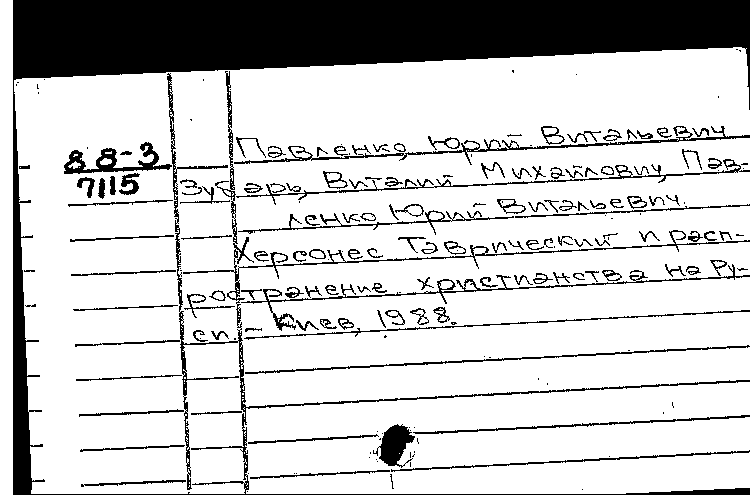 Павленко, Юрий Витальевич
88-3
7115
Зубарь, Виталий Михайлович, Пав-
ленко, Юрий Витальевич.
Херсонес Таврический и расп-
ространение христианства на Ру-
си. - Киев, 1988.